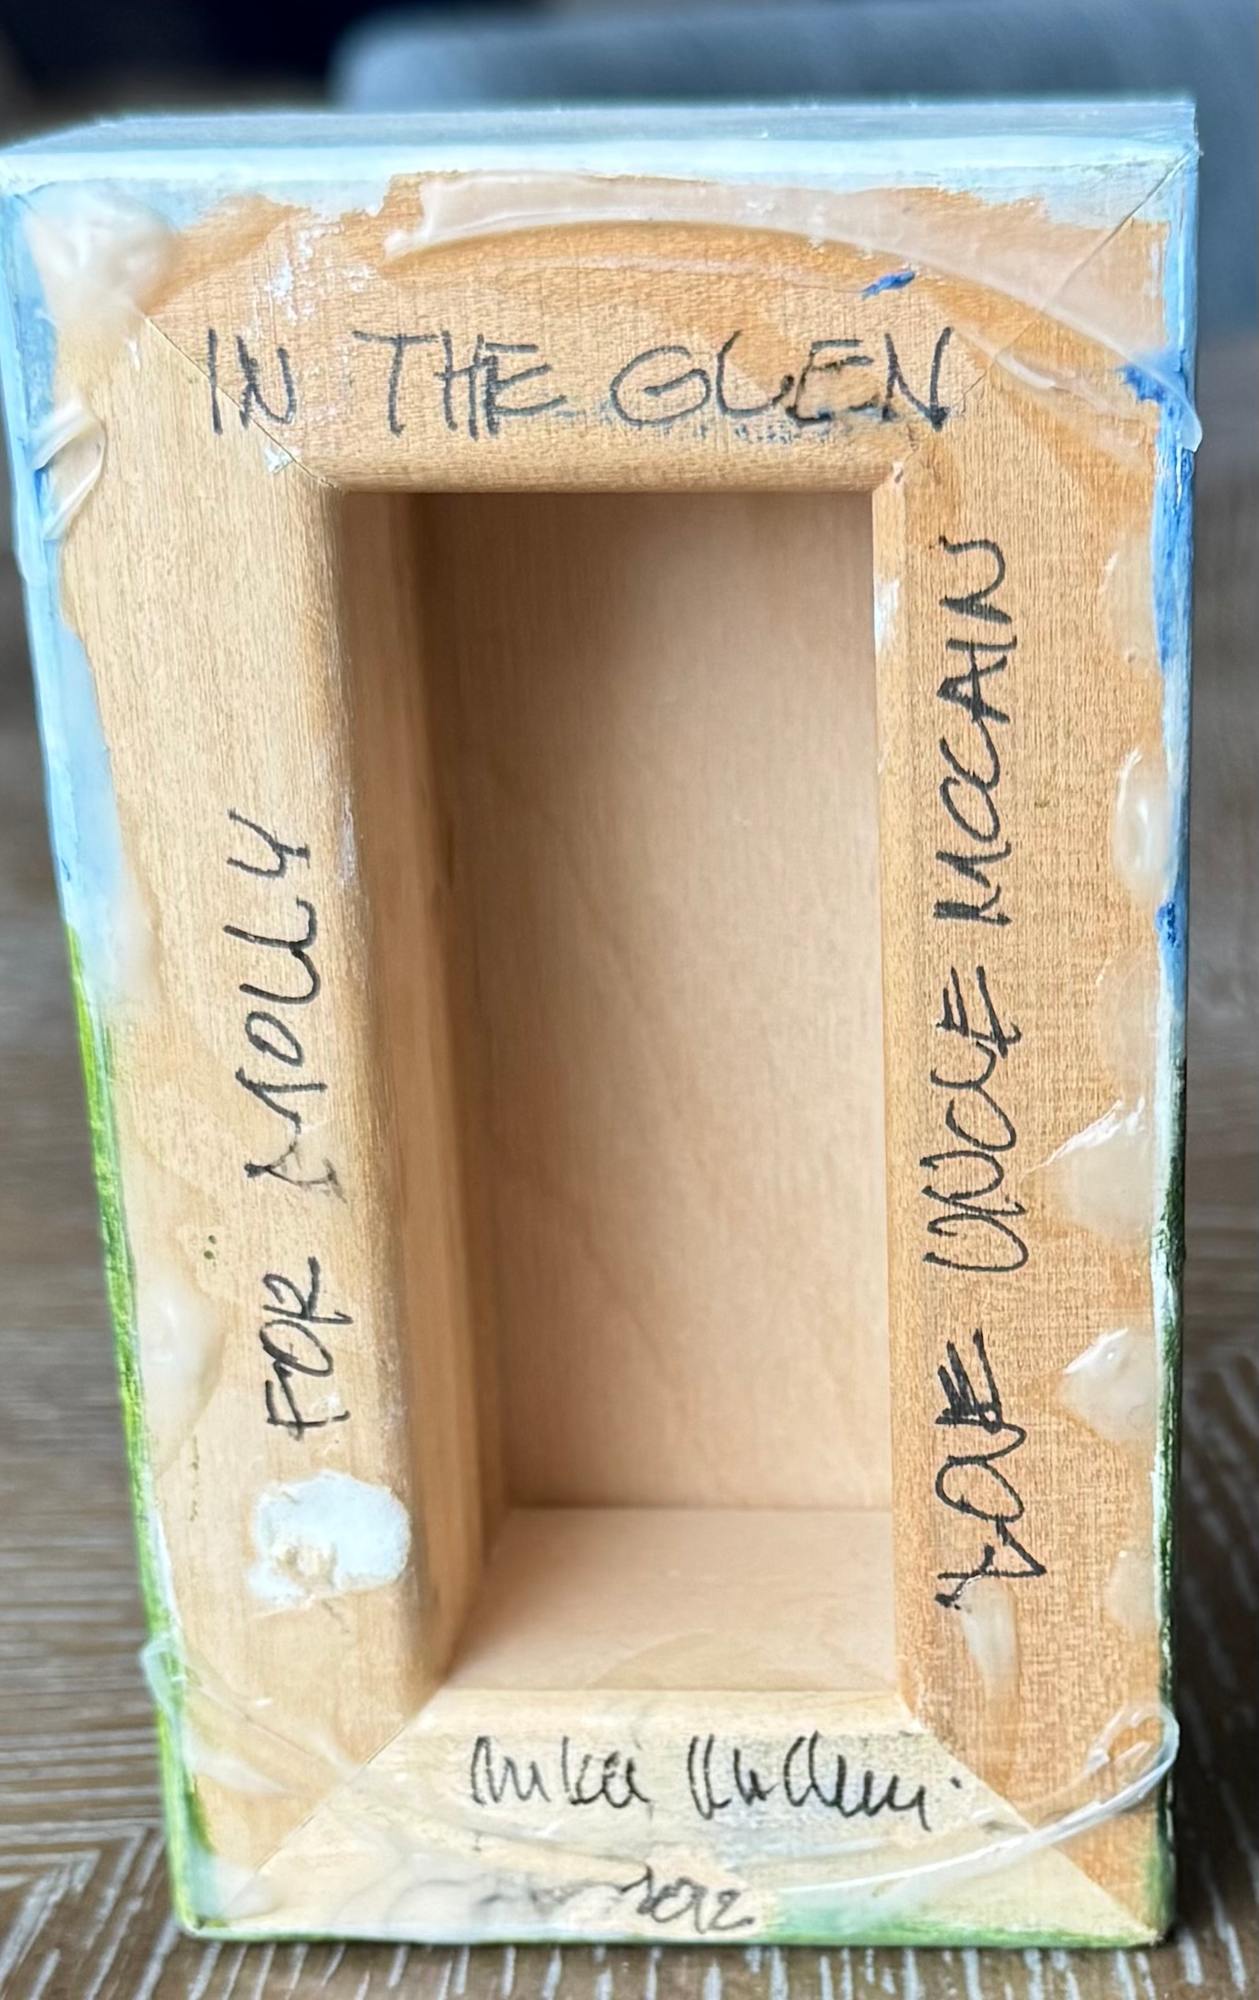 IN THE GLEN
FOR MOLLY
LOVE UNCLE MCCAIN
2012